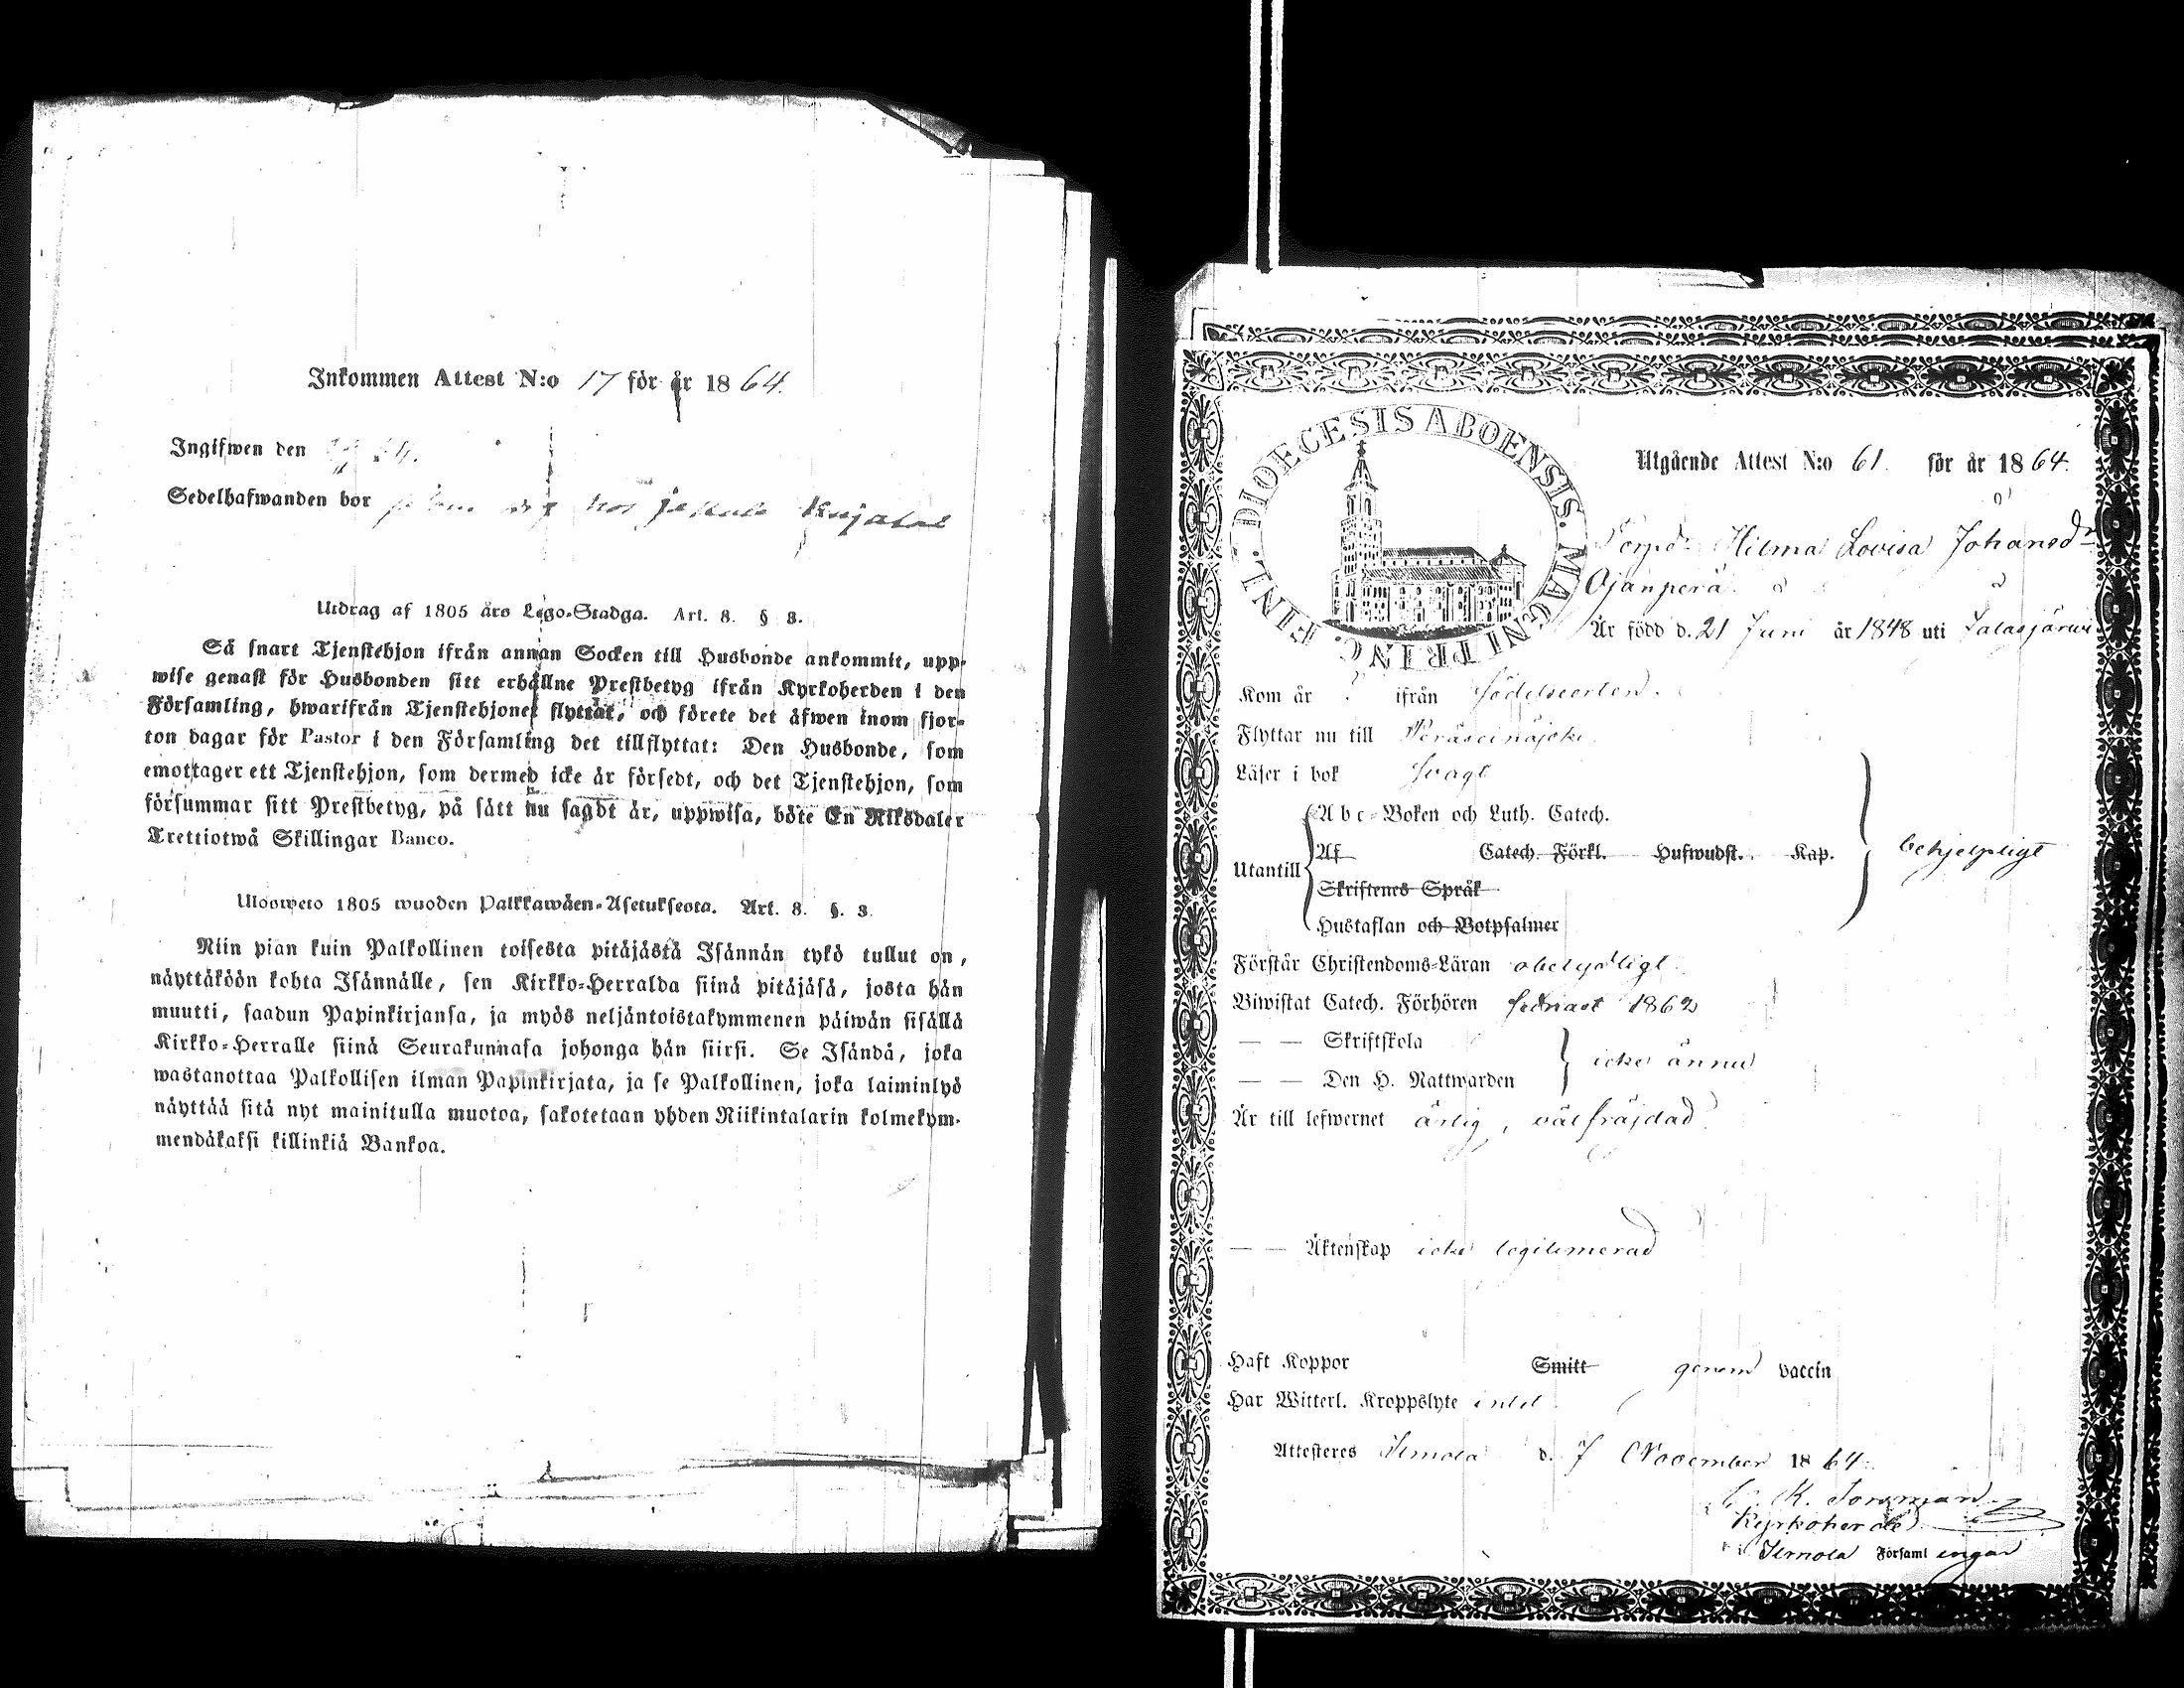 Inkommen Attest N:o 17 för år 1864.
Ingifwen den
Sedelhafwanden bor hos
Utdrag af 1805 års Lego-Stadga. Art. 8. § 3.
Så snart Tjenstehjon ifrån annan Socken till Husbonde ankommit, upp-
wise genast för Husbonden sitt erhållne Prestbetyg ifrån Kyrkoherden i den
Församling, hwarifrån Tjenstehjonet flyttat, och förete det äfwen inom fjor-
ton dagar för Pastor i den Församling det tillflyttat: Den Husbonde, som
emottager ett Tjenstehjon, som dermed icke är försedt, och det Tjenstehjon, som
försummar sitt Prestbetyg, på sätt nu sagdt är, uppwisa, böte En Riksdaler
Trettiotwå Skillingar Banco.
Ulosweto 1805 wuoden Palkkawäen-Asetuksesta. Art. 8. §. 3.
Niin pian kuin Palkollinen toisesta pitäjästä Isännän tykö tullut on,
näyttäköön kohta Isännälle, sen Kirkko-Herralda siinä pitäjäsä, josta hän
muutti, saadun Papinkirjansa, ja myös neljäntoistakymmenen päiwän sisällä
Kirkko-Herralle siinä Seurakunnasa johonga hän siirsi. Se Isändä, joka
wastanottaa Palkollisen ilman Papinkirjata, ja se Palkollinen, joka laiminlyö
näyttää sitä nyt mainitulla muotoa, sakotetaan yhden Riikintalarin kolmekym-
mendäkaksi killinkiä Bankoa.
DIOECESIS ABOENSIS. MAGNI PRINC. FINL.
Utgående Attest N:o 61. för år 1864.
Hilma Lovisa Johansdr
Ojanperä
Är född d. 21 Juni år 1848 uti Jalasjärvi
Kom år ifrån födelseorten.
Flyttar nu till Peräseinäjoki
Läser i bok svagt
Utantill
Abc-Boken och Luth. Catech.
Af Catech. Förkl. Hufwudst. Kap.
Skriftenes Språk
Hustaflan och Botpsalmer
behjelpligt
Förstår Christendoms-Läran obetydligt
Biwistat Catech. Förhören sednast 1862
— — Skriftskola
— — Den H. Nattwarden
icke ännu
Är till lefwernet ärlig, välfräjdad
— — Äktenskap icke legitimerad
Haft Koppor Smitt genom vaccin
Har Witterl. Kroppslyte intet
Attesteres Ilmola d. 7 November 1864.
K. Forsman
Kyrkoherde
Ilmola Församlingar